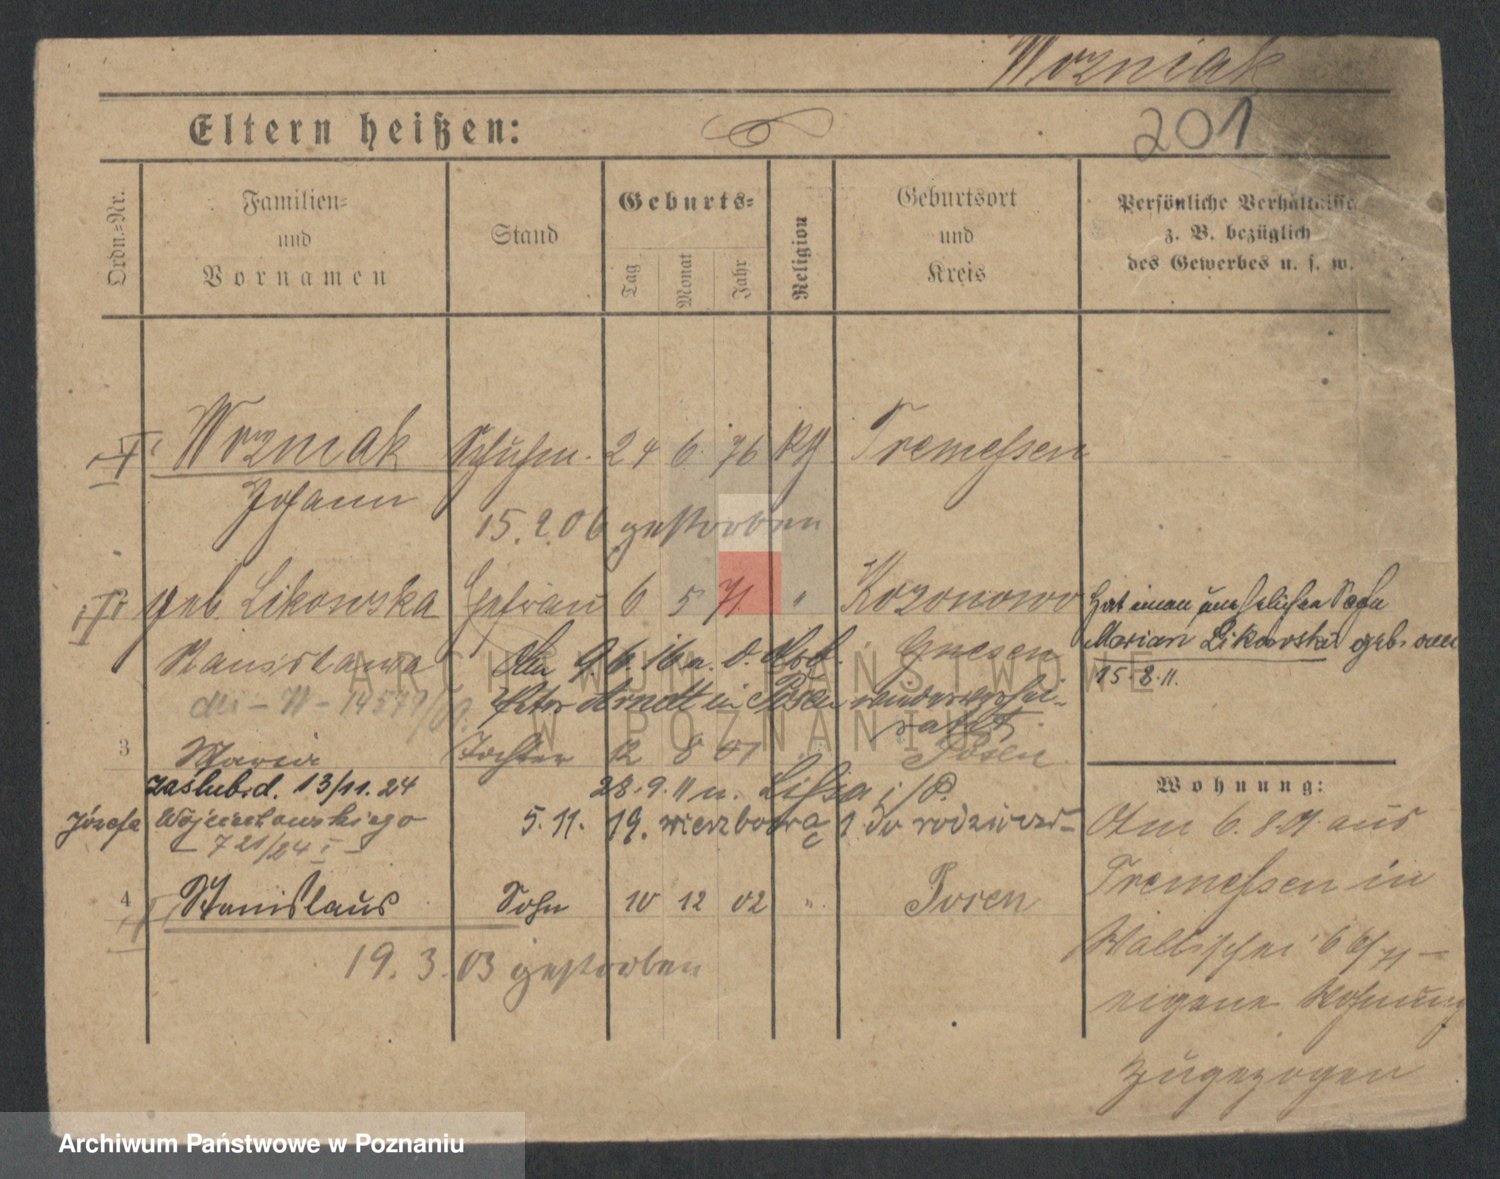 Wozniak
201
Eltern heißen:
Ordn.=Nr.
Familien=
und
Vornamen
Stand
Geburts=
Tag
Monat
Jahr
Religion
Geburtsort
und
Kreis
Persönliche Verhältnisse
z. B. bezüglich
des Gewerbes u. s. w.
Wozniak Schuhm. 24 6. 76 Tremessen
Johann
15. 2. 06 gestorben
geb. Likowska Ehefrau 6 5 71. " Kozonowo
Stanislawa Gnesen
Hat einen unehelichen Sohn
Marian Likowski geb. am
15.8.11.
Peter Arndt in Posen
3 Maria Tochter 12 8 01 Posen
zaślub. d. 13/11. 24 28.9.11 n. Lissa i/P.
Józefa Wojciechowskiego 5.11. 19. do rodziców
721/24 I
4 Stanislaus Sohn 10 12 02 " Posen
19. 3. 03 gestorben
Wohnung:
Am 6. 8. 01. aus
Tremessen in
Wallischei
eigene Wohnung
zugezogen
ARCHIWUM PAŃSTWOWE
W POZNANIU
Archiwum Państwowe w Poznaniu